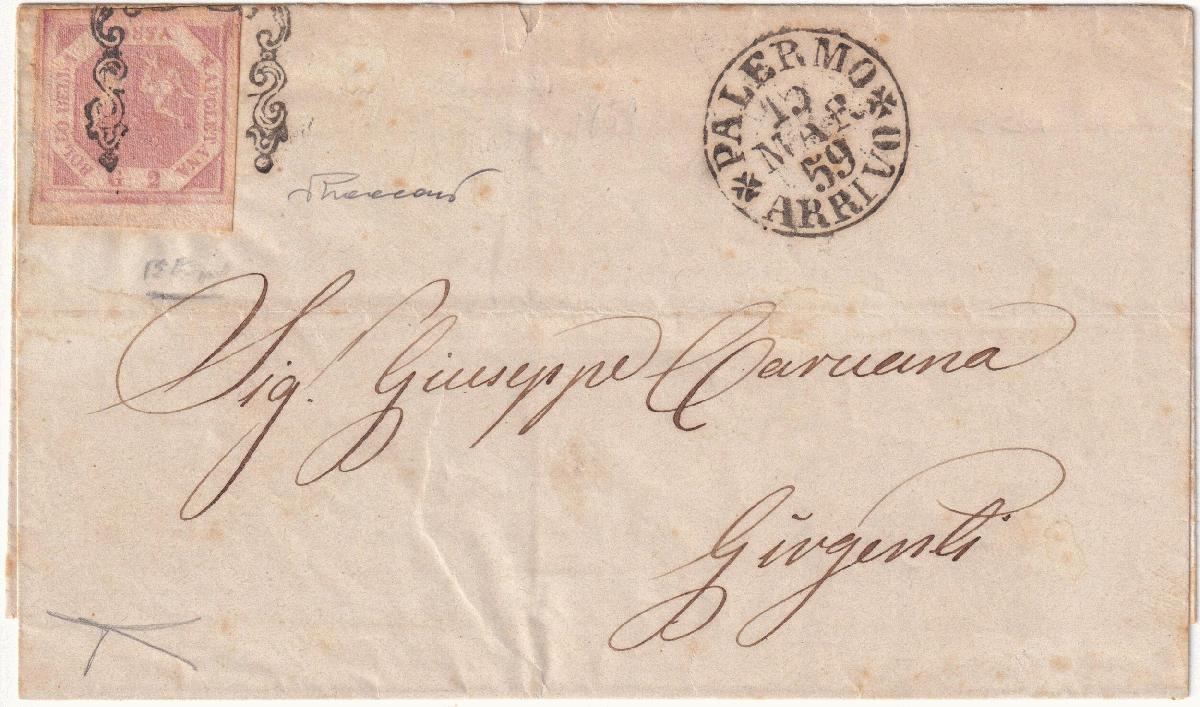 BOLLO DELLA POSTA NAPOLETANA
G. 2
PALERMO
12
MAR
59
ARRIVO
Sig. Giuseppe Caruana
Girgenti